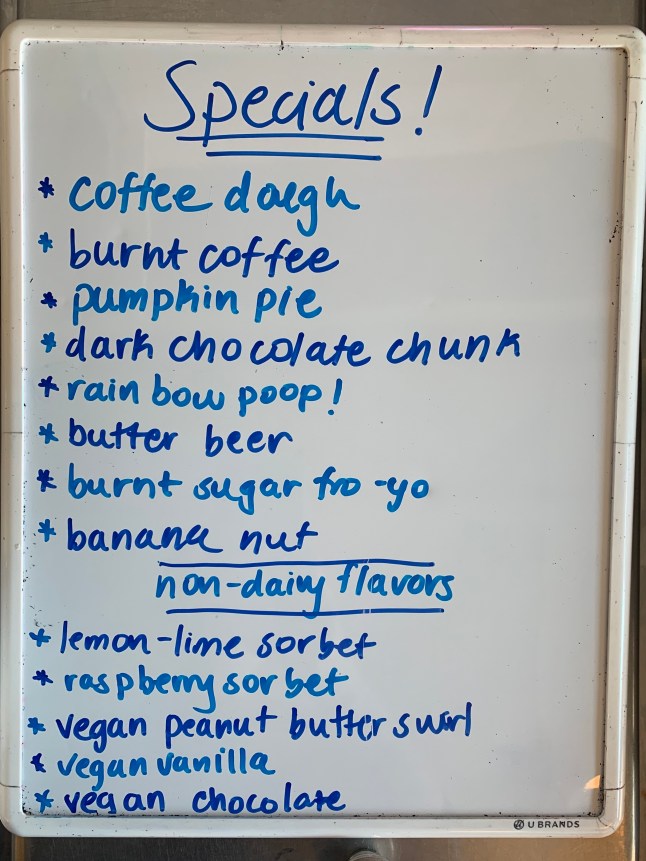 Specials!
* coffee dough
* burnt coffee
* pumpkin pie
* dark chocolate chunk
* rainbow poop!
* butter beer
* burnt sugar fro-yo
* banana nut
non-dairy flavors
* lemon-lime sorbet
* raspberry sorbet
* vegan peanut butter swirl
* vegan vanilla
* vegan chocolate
U BRANDS